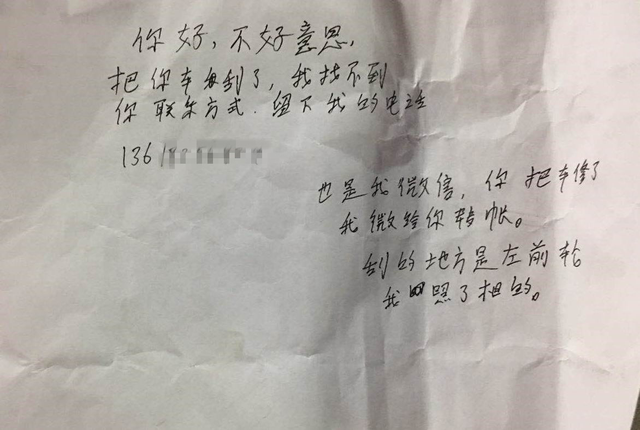 你好，不好意思，
把你车刮了，我找不到
你联系方式．留下我的电话
136
也是我微信，你把车修了
我微给你转帐。
刮的地方是左前轮
我照了相的。